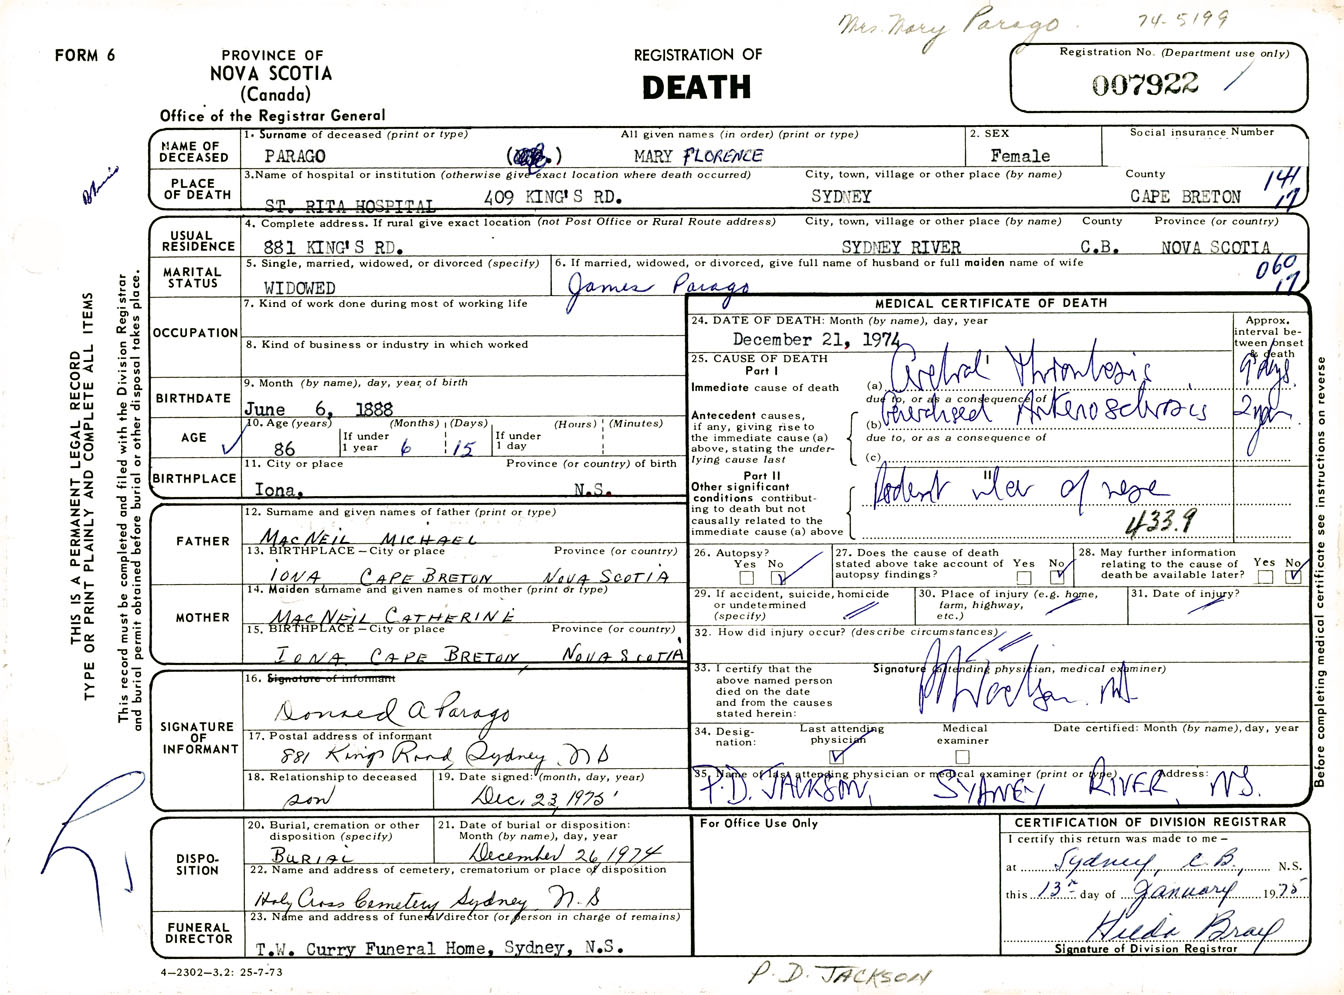 Mrs. Mary Parago. 74-5199
FORM 6
PROVINCE OF
NOVA SCOTIA
(Canada)
Office of the Registrar General
REGISTRATION OF
DEATH
Registration No. (Department use only)
007922
NAME OF DECEASED
1. Surname of deceased (print or type) All given names (in order) (print or type)
PARAGO MARY FLORENCE
2. SEX
Female
Social insurance Number
PLACE OF DEATH
3. Name of hospital or institution (otherwise give exact location where death occurred) City, town, village or other place (by name) County
ST. RITA HOSPITAL 409 KING'S RD. SYDNEY CAPE BRETON
141
17
USUAL RESIDENCE
4. Complete address. If rural give exact location (not Post Office or Rural Route address) City, town, village or other place (by name) County Province (or country)
881 KING'S RD. SYDNEY RIVER C.B. NOVA SCOTIA
MARITAL STATUS
5. Single, married, widowed, or divorced (specify)
WIDOWED
6. If married, widowed, or divorced, give full name of husband or full maiden name of wife
James Parago
060
17
OCCUPATION
7. Kind of work done during most of working life
8. Kind of business or industry in which worked
BIRTHDATE
9. Month (by name), day, year, of birth
June 6, 1888
AGE
10. Age (years) (Months) (Days) (Hours) (Minutes)
86 If under 1 year 6 15 If under 1 day
BIRTHPLACE
11. City or place Province (or country) of birth
Iona, N.S.
FATHER
12. Surname and given names of father (print or type)
MACNEIL MICHAEL
13. BIRTHPLACE – City or place Province (or country)
IONA CAPE BRETON NOVA SCOTIA
MOTHER
14. Maiden surname and given names of mother (print or type)
MACNEIL CATHERINE
15. BIRTHPLACE – City or place Province (or country)
IONA CAPE BRETON, NOVA SCOTIA
SIGNATURE OF INFORMANT
16. Signature of informant
Donald A Parago
17. Postal address of informant
881 Kings Road, Sydney, N S
18. Relationship to deceased
son
19. Date signed: (month, day, year)
Dec. 23, 1975
DISPO-
SITION
20. Burial, cremation or other disposition (specify)
BURIAL
21. Date of burial or disposition: Month (by name), day, year
December 26, 1974
22. Name and address of cemetery, crematorium or place of disposition
Holy Cross Cemetery Sydney N. S
FUNERAL DIRECTOR
23. Name and address of funeral director (or person in charge of remains)
T.W. Curry Funeral Home, Sydney, N.S.
4–2302–3.2: 25-7-73
MEDICAL CERTIFICATE OF DEATH
24. DATE OF DEATH: Month (by name), day, year
December 21, 1974
Approx. interval be-
tween onset & death
25. CAUSE OF DEATH
Part I
Immediate cause of death
(a) Cerebral Thrombosis 9 days.
due to, or as a consequence of
Antecedent causes,
if any, giving rise to
the immediate cause (a)
above, stating the under-
lying cause last
(b) Generalised Arteriosclerosis 2 yrs
due to, or as a consequence of
(c)
Part II
Other significant
conditions contribut-
ing to death but not
causally related to the
immediate cause (a) above
Rodent ulcer of nose
433.9
26. Autopsy?
Yes No
27. Does the cause of death
stated above take account of
autopsy findings? Yes No
28. May further information
relating to the cause of
death be available later? Yes No
29. If accident, suicide, homicide
or undetermined
(specify)
30. Place of injury (e.g. home,
farm, highway,
etc.)
31. Date of injury?
32. How did injury occur? (describe circumstances)
33. I certify that the
above named person
died on the date
and from the causes
stated herein:
Signature (attending physician, medical examiner)
34. Desig-
nation:
Last attending physician
Medical examiner
Date certified: Month (by name), day, year
35. Name of last attending physician or medical examiner (print or type) Address:
P.D. JACKSON, SYDNEY RIVER, N.S.
For Office Use Only
CERTIFICATION OF DIVISION REGISTRAR
I certify this return was made to me –
at Sydney, C.B., N.S.
this 13th day of January 1975
Hilda Bray
Signature of Division Registrar
P. D. JACKSON
THIS IS A PERMANENT LEGAL RECORD
TYPE OR PRINT PLAINLY AND COMPLETE ALL ITEMS
This record must be completed and filed with the Division Registrar
and burial permit obtained before burial or other disposal takes place.
Before completing medical certificate see instructions on reverse